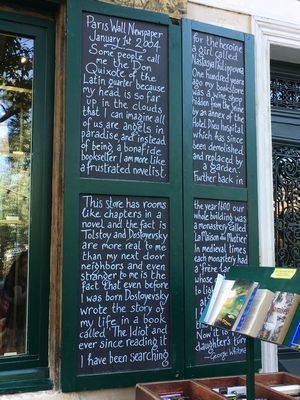 Paris Wall Newspaper
January 1st 2004
Some people call
me the Don
Quixote of the
Latin Quarter because
my head is so far
up in the clouds
that I can imagine all
of us are angels in
paradise, and instead
of being a bonafide
bookseller I am more like
a frustrated novelist
This store has rooms
like chapters in a
novel and the fact is
Tolstoi and Dostoyevsky
are more real to me
than my next door
neighbors and even
stranger to me is the
fact that even before
I was born Dostoyevsky
wrote the story of
my life in a book
called 'The Idiot' and
ever since reading it
I have been searching
for the heroine
a girl called
Nastasia Filipovna
One hundred years
ago my bookstore
was a wine shop
hidden from the Seine
by an annex of the
Hotel Dieu hospital
which has since
been demolished
and replaced by
a garden.
Further back in
the year 1600 our
whole building was
a monastery called
'La Maison du Mustier'
In medieval times
each monastery had
a 'frère
whose
to
at
fo
Now it
to
daughter's turn
George Whitman